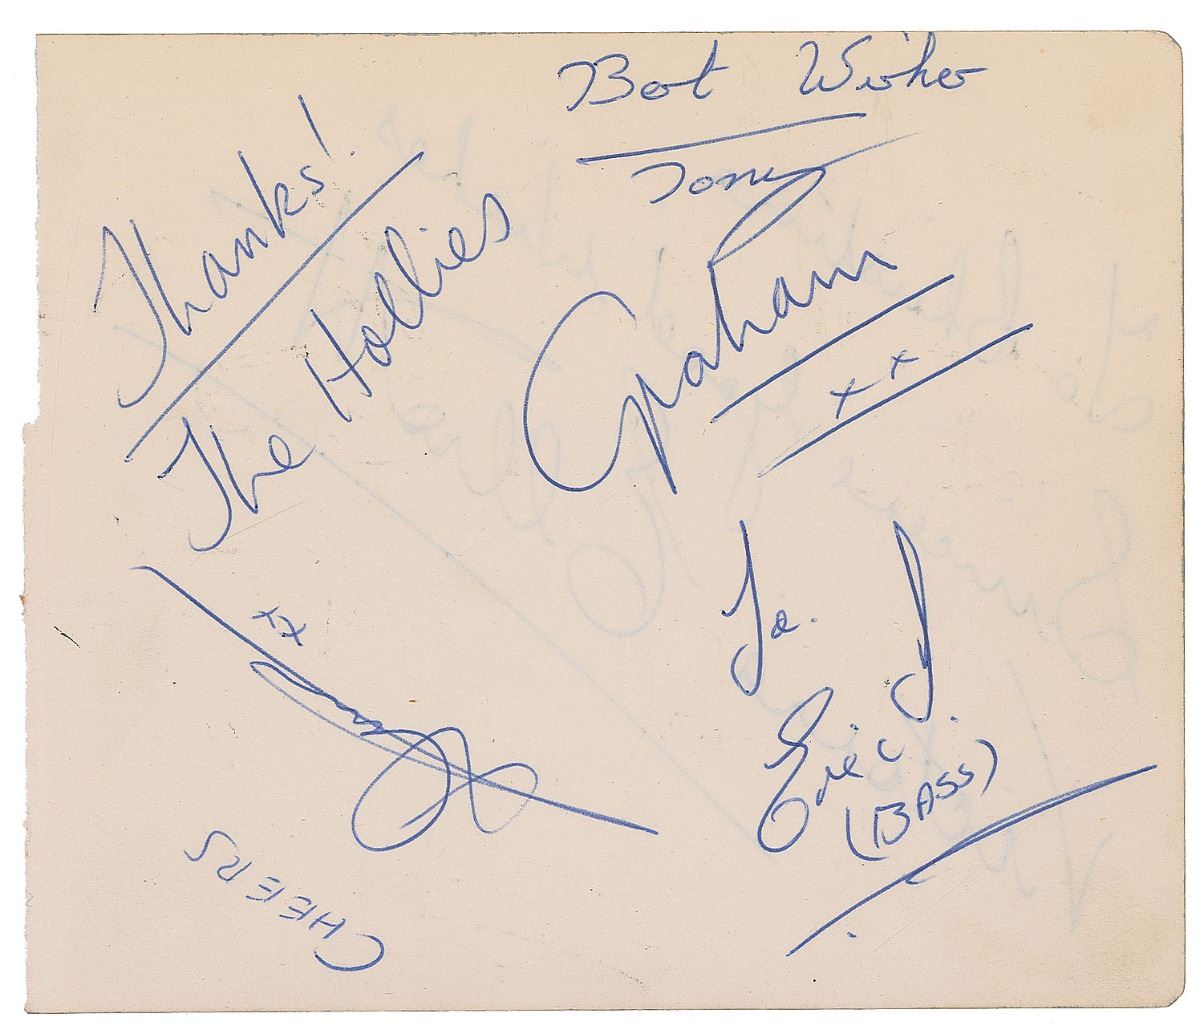 Best Wishes
Tony
Thanks!
The Hollies
Graham
xx
To.
Eric!
(BASS)
xx
CHEERS